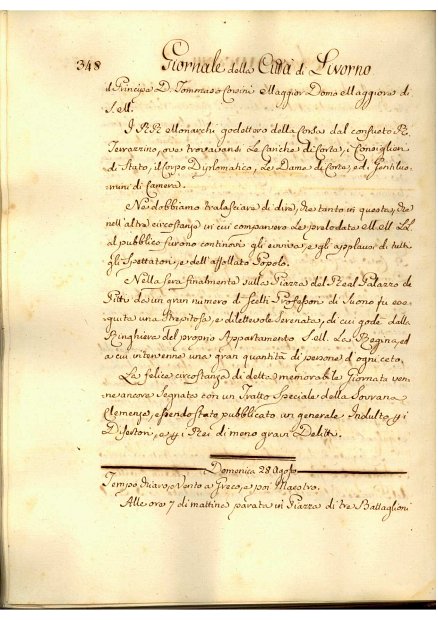 348 Giornale della Città di Livorno
il Principe D. Tommaso Corsini Maggior Domo Maggiore di
S. M.
I RR. Monarchi godettero della Corsa dal consueto R.
Terrazzino, ove trovavansi le Cariche di Corte, i Consiglieri
di Stato, il Corpo Diplomatico, le Dame di Corte, ed i Gentiluo-
mini di Camera.
Nè dobbiamo tralasciare di dire, che tanto in questa, che
nell'altre circostanze in cui comparvero le prelodate MM. LL.
al pubblico furono continovi gli evviva, e gli applausi di tutti
gli Spettatori, e dell'affollato Popolo.
Nella sera finalmente sulla Piazza del Real Palazzo de
Pitti da un gran numero di Scelti Professori di Suono fu ese-
guita una strepitosa, e dilettevole Serenata, di cui godè dalla
Ringhiera del proprio Appartamento S. M. la Regina, ed
a cui intervenne una gran quantità di persone d'ogni ceto.
La felice circostanza di detta memorabile Giornata ven-
ne ancora Segnata con un Tratto Speciale della Sovrana
Clemenza, essendo stato pubblicato un generale Indulto pi
Disertori, e pi Rei di meno gravi Delitti.
Domenica 28 Agosto
Tempo chiaro, e Vento a Greco, e poi Maestro.
Alle ore 7 di mattina parata in Piazza di tre Battaglioni